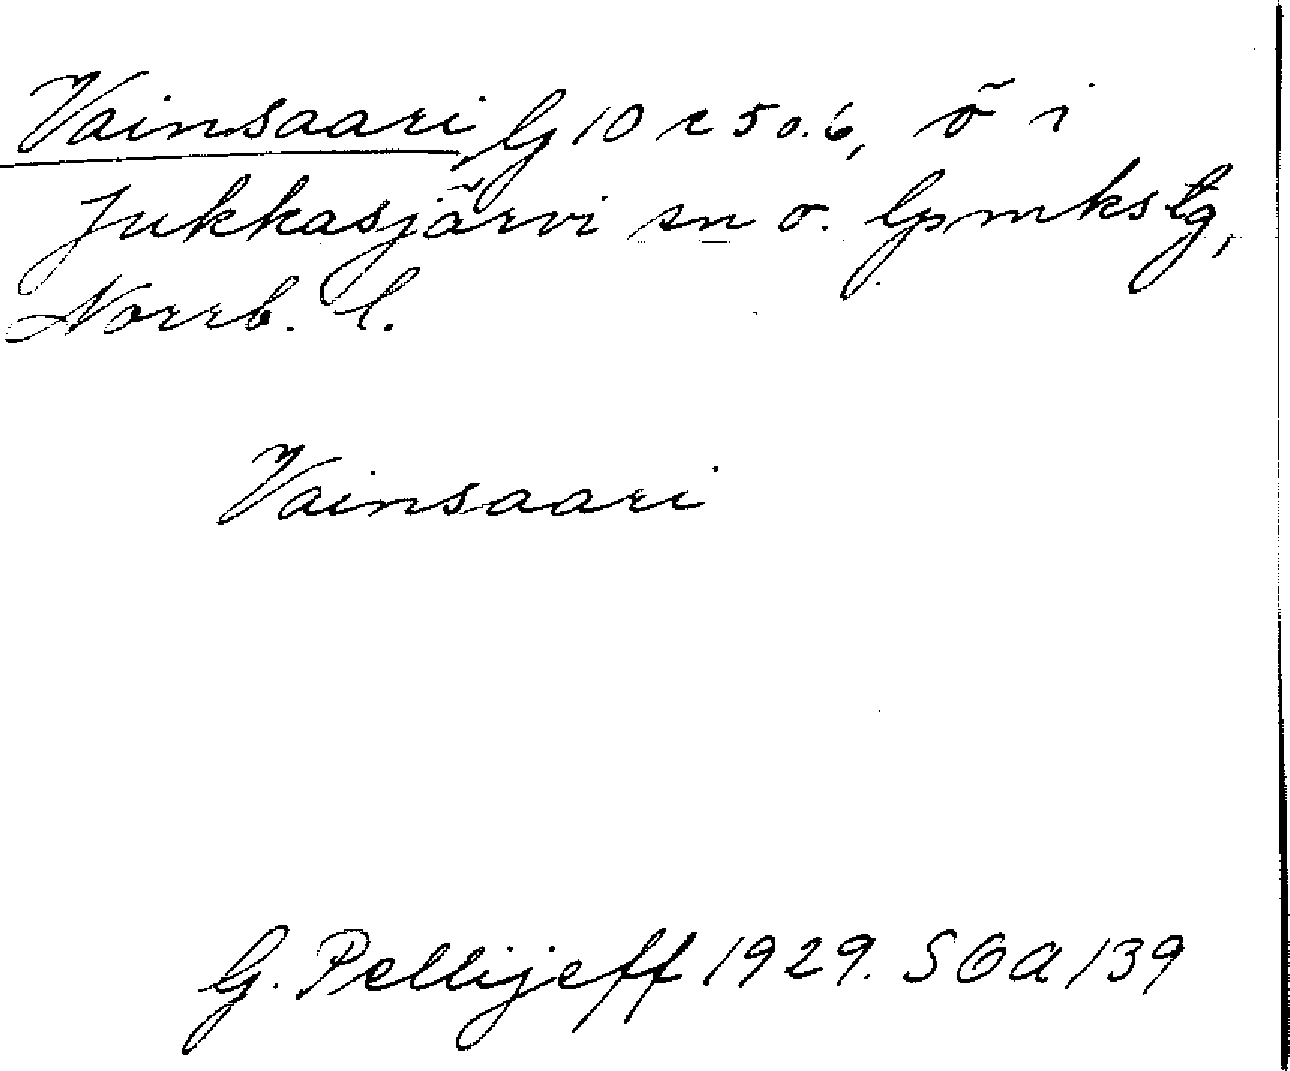 Vainsaari, G 10 c 5 o. 6, ö i
Jukkasjärvi sn o. lpmkstg,
Norrb. l.
Vainsaari
G. Pellijeff 1929. SOA 139